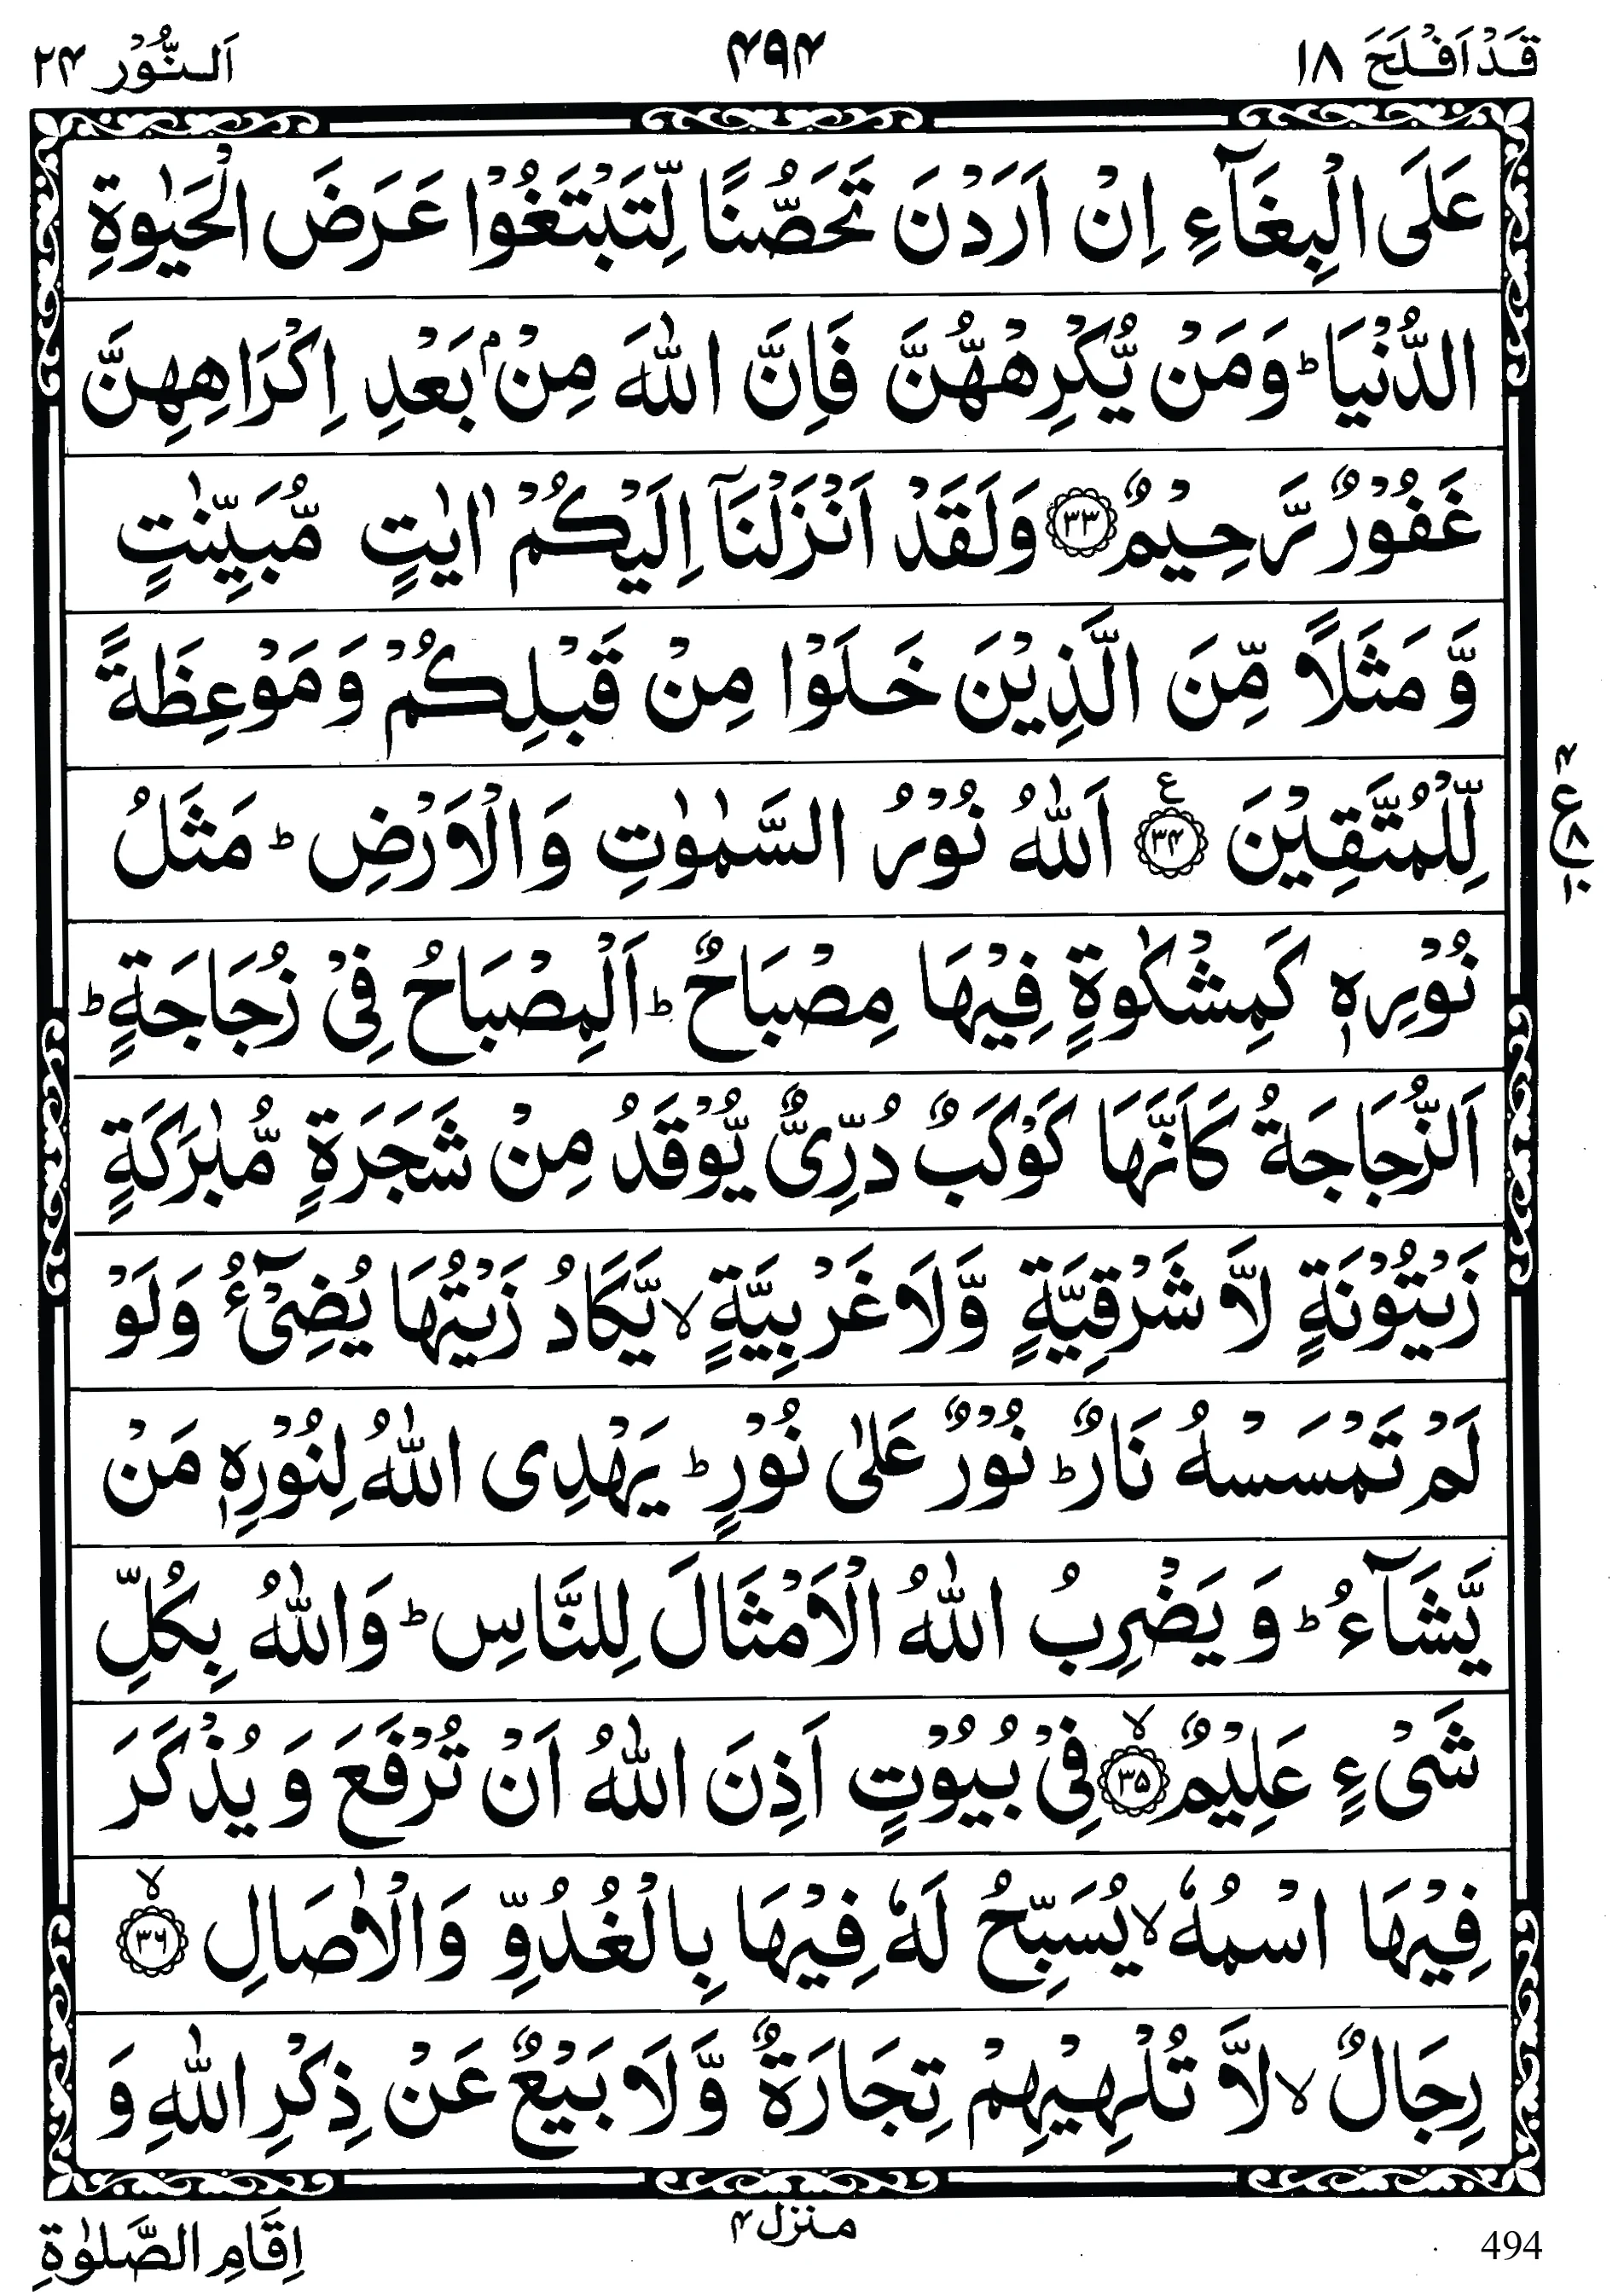 قَدْ اَفْلَحَ ١٨
۴۹۴
اَلنُّوْر ٢۴
عَلَى الْبِغَآءِ اِنْ اَرَدْنَ تَحَصُّنًا لِّتَبْتَغُوْا عَرَضَ الْحَيٰوةِ
الدُّنْيَا ؕ وَمَنْ يُّكْرِهْهُّنَّ فَاِنَّ اللّٰهَ مِنْۢ بَعْدِ اِكْرَاهِهِنَّ
غَفُوْرٌ رَّحِيْمٌ ﴿٣٣﴾ وَلَقَدْ اَنْزَلْنَاۤ اِلَيْكُمْ اٰيٰتٍ مُّبَيِّنٰتٍ
وَّ مَثَلًا مِّنَ الَّذِيْنَ خَلَوْا مِنْ قَبْلِكُمْ وَمَوْعِظَةً
لِّلْمُتَّقِيْنَ ﴿٣۴﴾ ع اَللّٰهُ نُوْرُ السَّمٰوٰتِ وَالْاَرْضِ ؕ مَثَلُ
نُوْرِهٖ كَمِشْكٰوةٍ فِيْهَا مِصْبَاحٌ ؕ اَلْمِصْبَاحُ فِيْ زُجَاجَةٍ ؕ
اَلزُّجَاجَةُ كَاَنَّهَا كَوْكَبٌ دُرِّيٌّ يُّوْقَدُ مِنْ شَجَرَةٍ مُّبٰرَكَةٍ
زَيْتُوْنَةٍ لَّا شَرْقِيَّةٍ وَّلَا غَرْبِيَّةٍ ۙ يَّكَادُ زَيْتُهَا يُضِيْٓءُ وَلَوْ
لَمْ تَمْسَسْهُ نَارٌ ؕ نُوْرٌ عَلٰى نُوْرٍ ؕ يَهْدِى اللّٰهُ لِنُوْرِهٖ مَنْ
يَّشَآءُ ؕ وَ يَضْرِبُ اللّٰهُ الْاَمْثَالَ لِلنَّاسِ ؕ وَاللّٰهُ بِكُلِّ
شَىْءٍ عَلِيْمٌ ﴿٣۵﴾ ۙ فِيْ بُيُوْتٍ اَذِنَ اللّٰهُ اَنْ تُرْفَعَ وَ يُذْكَرَ
فِيْهَا اسْمُهٗ ۙ يُسَبِّحُ لَهٗ فِيْهَا بِالْغُدُوِّ وَالْاٰصَالِ ﴿٣٦﴾ ۙ
رِجَالٌ ۙ لَّا تُلْهِيْهِمْ تِجَارَةٌ وَّلَا بَيْعٌ عَنْ ذِكْرِ اللّٰهِ وَ
منزل ۴
اِقَامِ الصَّلٰوةِ
494